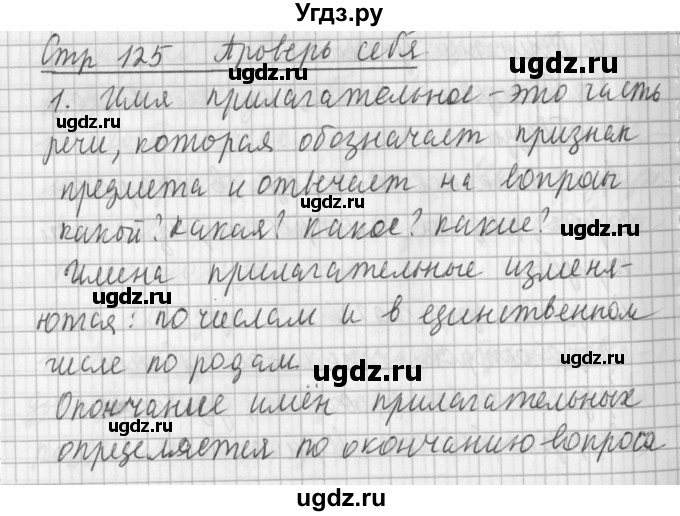 Угдз.ру
Стр 125 Проверь себя
ugdz.ru
ugdz.ru
1. Имя прилагательное - это часть
ugdz.ru
ugdz.ru
речи, которая обозначает признак
предмета и отвечает на вопросы
ugdz.ru
ugdz.ru
какой? какая? какое? какие?
Имена прилагательные изменя-
ugdz.ru
ugdz.ru
ются: по числам и в единственном
числе по родам
ugdz.ru
ugdz.ru
Окончание имён прилагательных
ugdz.ru
ugdz.ru
определяется по окончанию вопроса
ugdz.ru
ugdz.ru